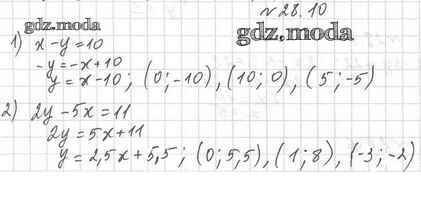 №28.10
gdz.moda
gdz.moda
1) x-y=10
-y=-x+10
y=x-10; (0;-10), (10; 0), (5;-5)
2) 2y-5x=11
2y=5x+11
y=2,5x+5,5; (0;5,5), (1;8), (-3;-2)